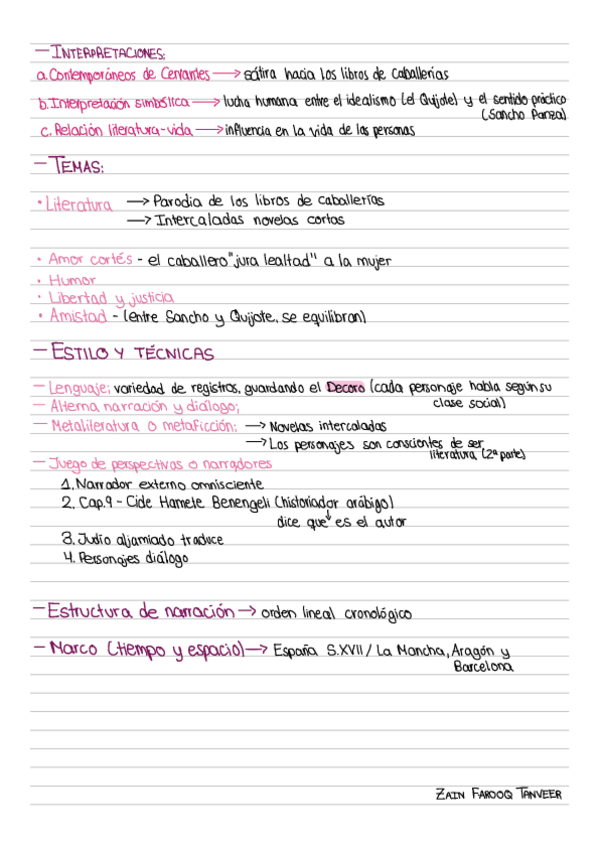 — INTERPRETACIONES:
a. Contemporáneos de Cervantes → sátira hacia los libros de caballerías
b. Interpretación simbólica → lucha humana entre el idealismo (el Quijote) y el sentido práctico
(Sancho Panza)
c. Relación literatura-vida → influencia en la vida de las personas
— TEMAS:
• Literatura → Parodia de los libros de caballerías
→ Intercaladas novelas cortas
• Amor cortés - el caballero "jura lealtad" a la mujer
• Humor
• Libertad y justicia
• Amistad - (entre Sancho y Quijote, se equilibran)
— ESTILO Y TÉCNICAS
— Lenguaje: variedad de registros, guardando el Decoro (cada personaje habla según su
clase social)
— Alterna narración y diálogo;
— Metaliteratura o metaficción: → Novelas intercaladas
→ Los personajes son conscientes de ser
literatura (2ª parte)
— Juego de perspectivas o narradores
1. Narrador externo omnisciente
2. Cap.9 - Cide Hamete Benengeli (historiador arábigo)
dice que ↓ es el autor
3. Judío aljamiado traduce
4. Personajes diálogo
— Estructura de narración → orden lineal cronológico
— Marco (tiempo y espacio) → España S.XVII / La Mancha, Aragón y
Barcelona
ZAIN FAROOQ TANVEER